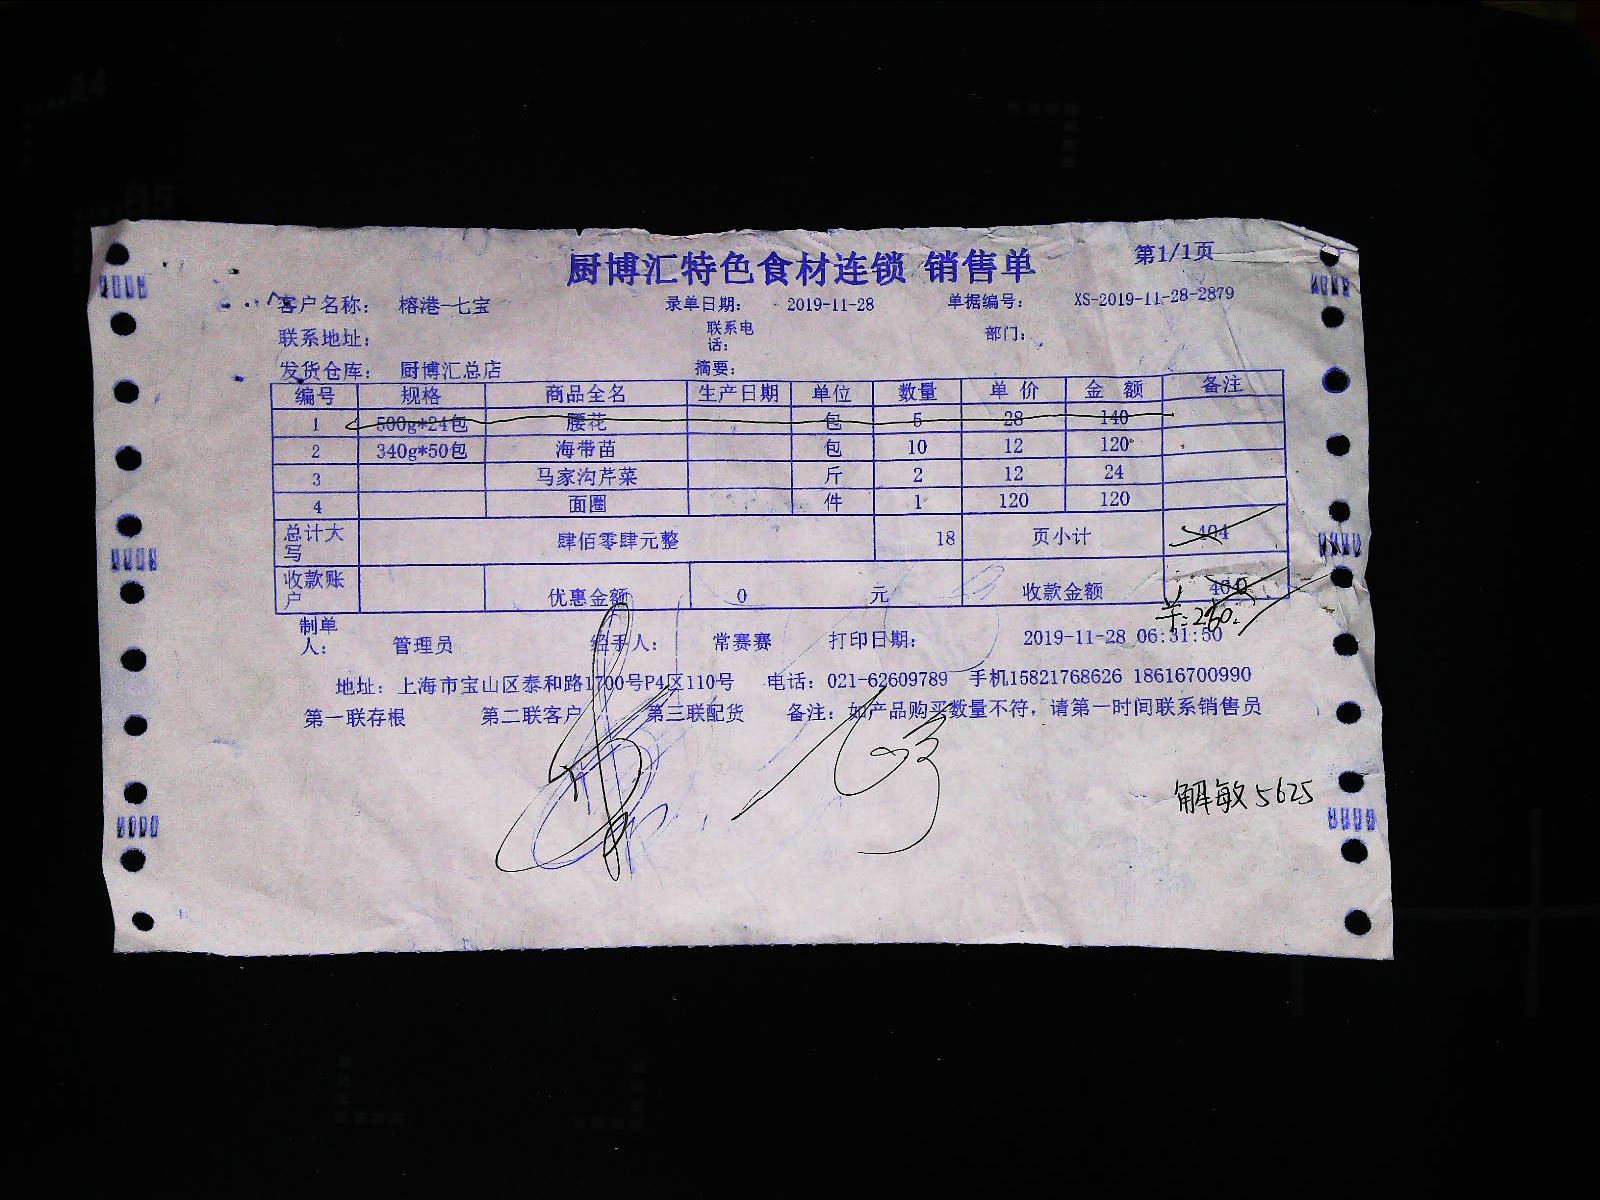 厨博汇特色食材连锁 销售单 第1/1页
客户名称： 榕港-七宝 录单日期： 2019-11-28 单据编号： XS-2019-11-28-2879
联系地址： 联系电话： 部门：
发货仓库： 厨博汇总店 摘要：
编号 规格 商品全名 生产日期 单位 数量 单 价 金 额 备注
1 500g*24包 腰花 包 5 28 140
2 340g*50包 海带苗 包 10 12 120
3 马家沟芹菜 斤 2 12 24
4 面圈 件 1 120 120
总计大写 肆佰零肆元整 18 页小计 404
收款账户 优惠金额 0 元 收款金额 404
制单人： 管理员 经手人： 常赛赛 打印日期： 2019-11-28 06:31:50
地址：上海市宝山区泰和路1700号P4区110号 电话：021-62609789 手机15821768626 18616700990
第一联存根 第二联客户 第三联配货 备注：如产品购买数量不符，请第一时间联系销售员
解敏5625